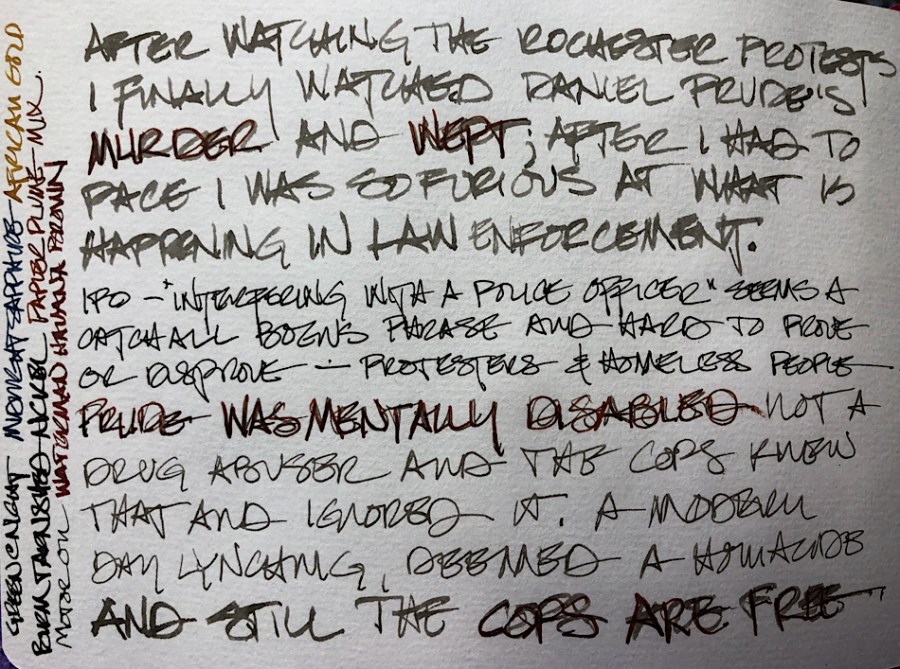 AFTER WATCHING THE ROCHESTER PROTESTS
I FINALLY WATCHED DANIEL PRUDE'S
MURDER AND WEPT; AFTER I HAD TO
PACE I WAS SO FURIOUS AT WHAT IS
HAPPENING IN LAW ENFORCEMENT.
IPO - "INTERFERING WITH A POLICE OFFICER" SEEMS A
CATCHALL PHRASE AND HARD TO PROVE
OR DISPROVE - PROTESTERS & HOMELESS PEOPLE
PRUDE WAS MENTALLY DISABLED NOT A
DRUG ABUSER AND THE COPS KNEW
THAT AND IGNORED IT. A MODERN
DAY LYNCHING, DEEMED A HOMICIDE
AND STILL THE COPS ARE FREE
GREEN NIGHT MIDNIGHT SAPPHIRE AFRICAN GOLD
TARNISHED NICKEL PAPIER PLUME MIX.
MOTOR OIL WATERMAN HAVANA BROWN